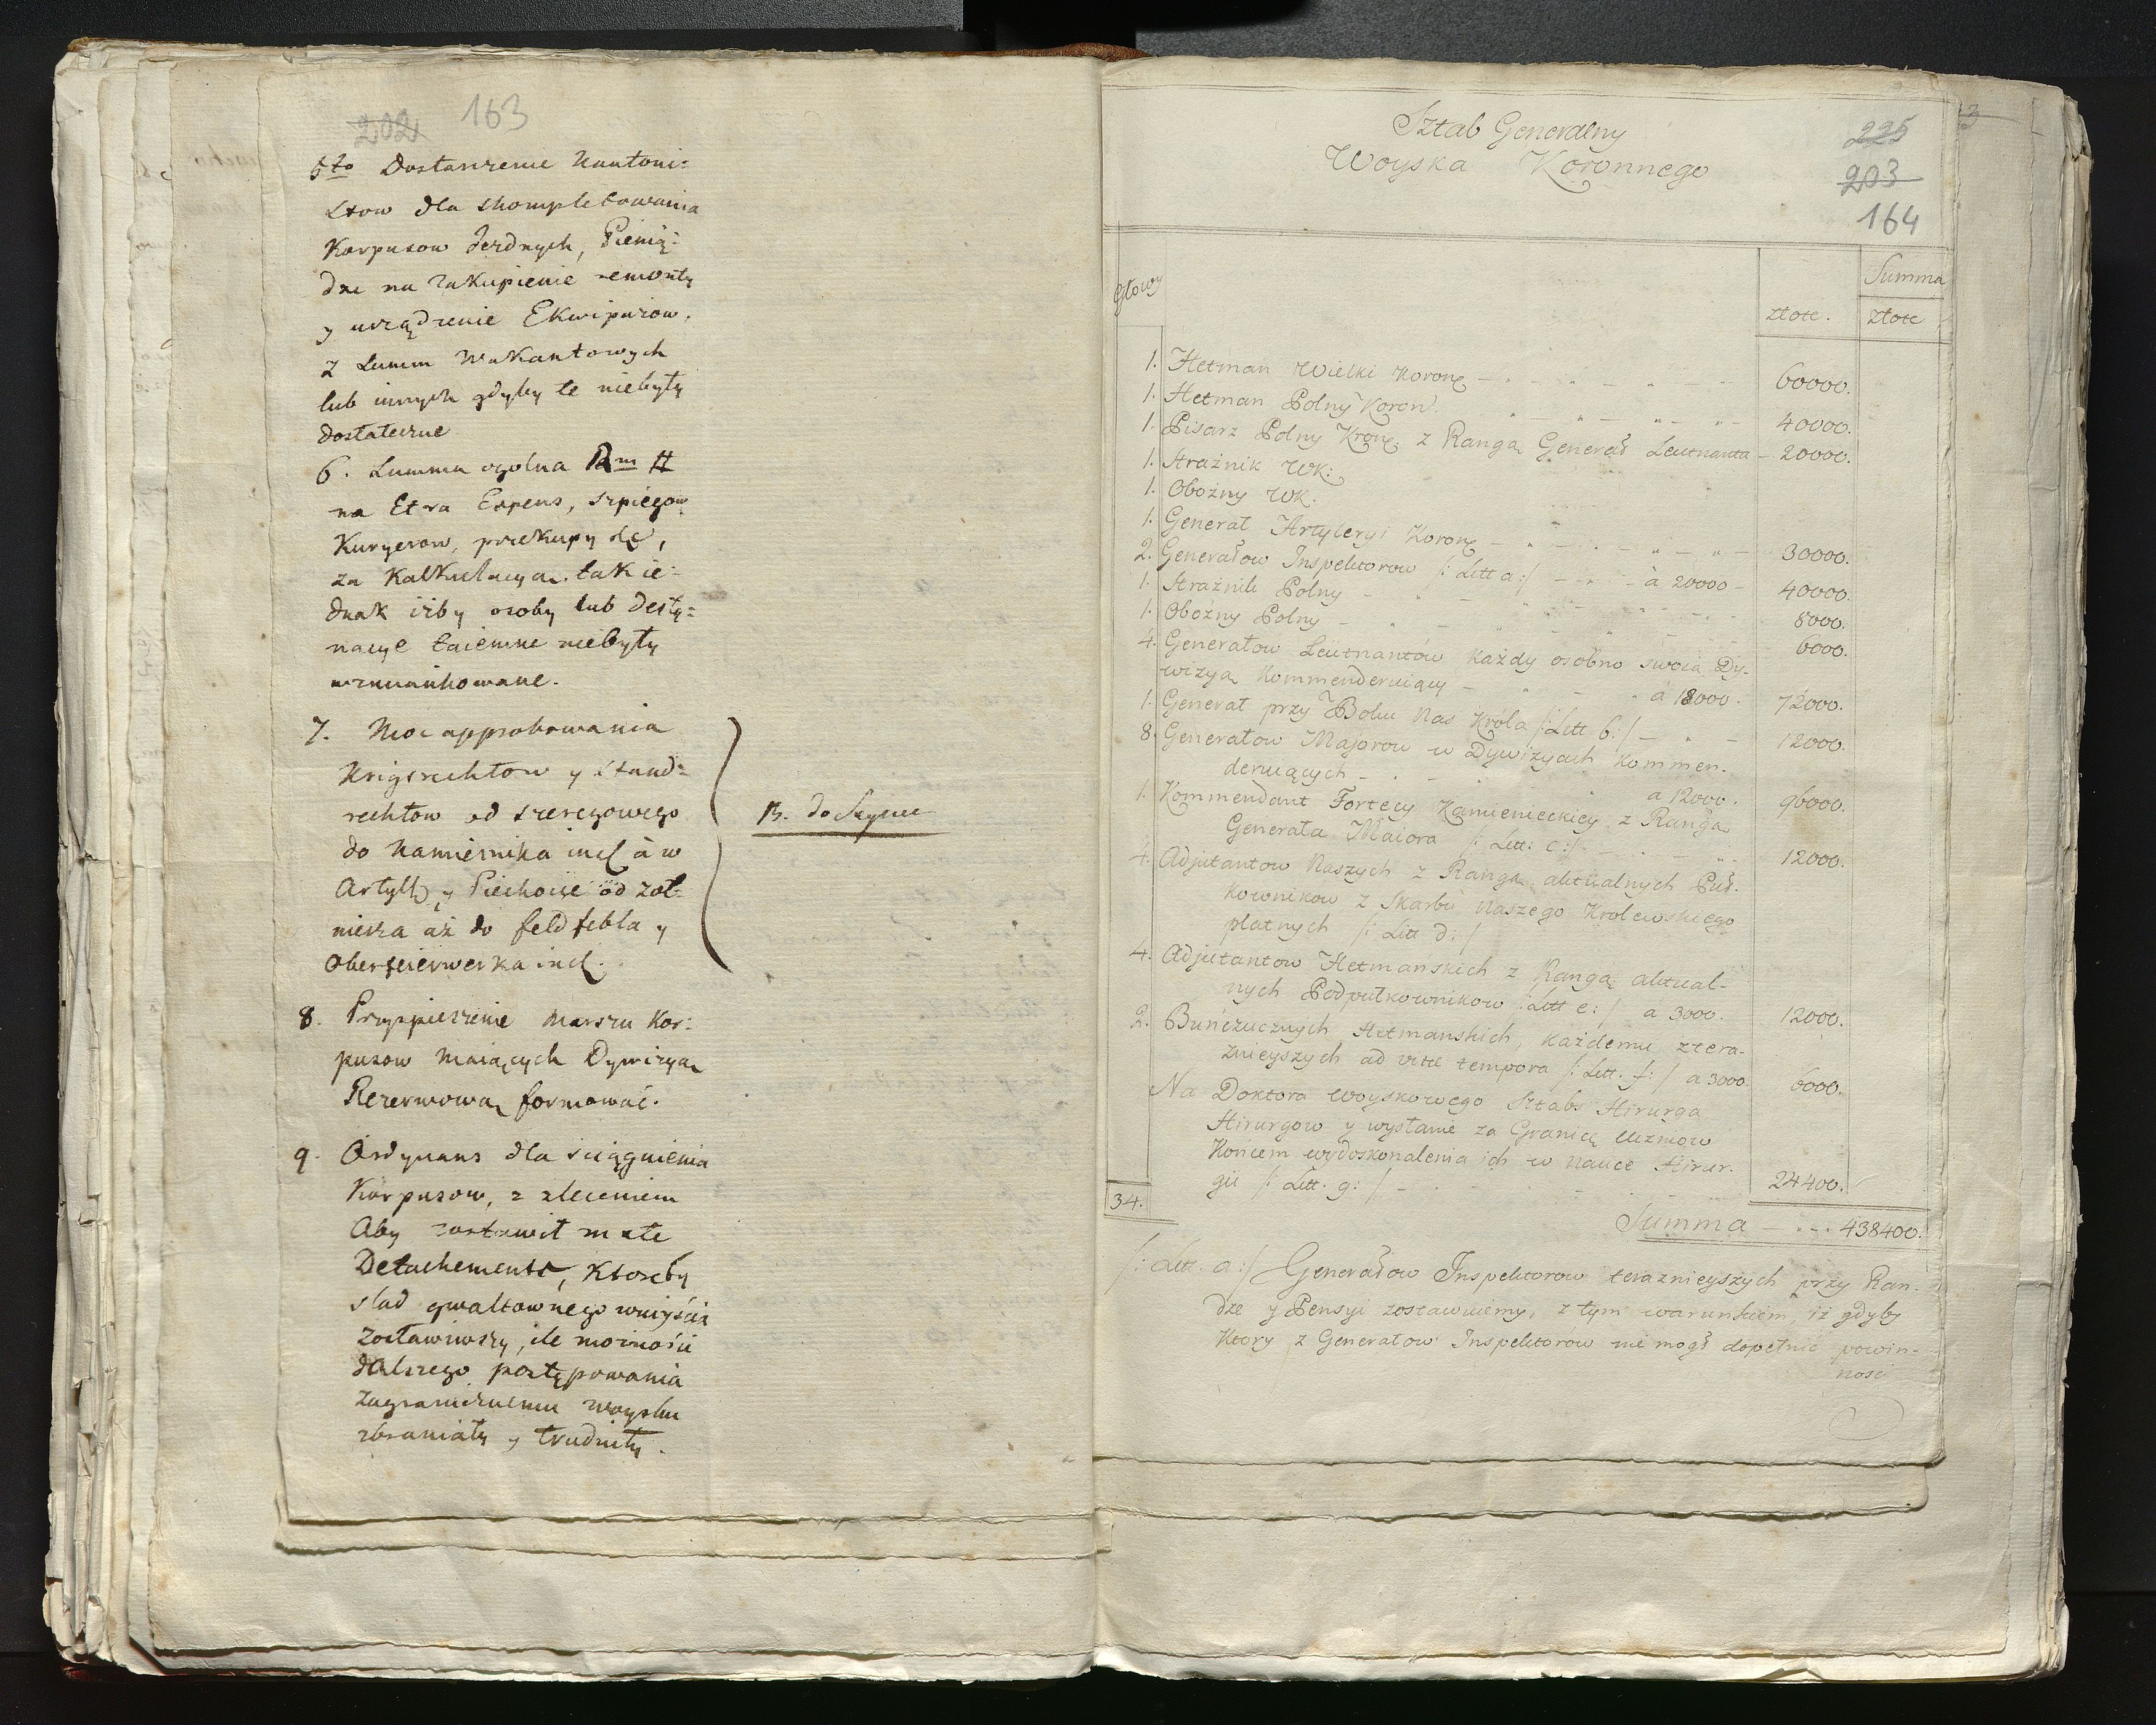 202 163
5to Dostarczenie Kantoni:
stow dla skompletowania
Korpusow Jezdnych, Pienią:
dze na zakupienie remonty
y urządzenie Ekwipażow,
z Summ Wakantowych
lub innych gdyby te niebyły
dostateczne
6. Summa ogolna
na Etra Expens, szpiegow
Kuryerow, przekupy etc,
za Kalkulacyą. tak ie:
dnak iżby osoby lub desty:
nacye taiemne niebyły
wzmiankowane.
7. Moc approbowania
Krigsrechtow y Stand:
rechtow od szeregowego
do Namiesnika incl à w
Artylly y Piechocie od żoł:
nierza aż do feldfebla y
Oberfeierwerka incl.
B. do Seymu
8. Przyspieszenie Marszu Kor:
pusow maiących Dywizyą
Rezerwową formować.
9. Ordynans dla sciągnienia
Korpusow, z zleceniem
Aby zostawił małe
Detachementa, Ktoreby
slad gwałtownego wniyścia
Zostawiwszy, ile możności
dalszego postępowania
zagranicznemu woysku
zbraniały y trudniły.
Sztab Generalny
Woyska Koronnego
225
203
164
Głowy
Summa
złote. złote
1. Hetman Wielki Koronę 60000.
1. Hetman Polny Koron. 40000.
1. Pisarz Polny Kronę z Rangą Generał Leutnanta 20000.
1. Strażnik WK:
1. Obozny WK.
1. Generał Artyleryi Koronę 30000.
2. Generałow Inspektorow /: Litt a:/ à 20000 40000.
1. Strażnik Polny 8000.
1. Obożny Polny 6000.
4. Generałow Leutnantów każdy osobno swoią Dy-
wizyą Kommenderuiący à 18000. 72000.
1. Generał przy Boku Nas Króla /: Litt b:/ 12000.
8. Generałow Majorow w Dywizyach Kommen-
deruiących a 12000. 96000.
1. Kommendant Fortecy Kamienieckiey z Rangą
Generała Maiora /: Litt: c:/ 12000.
4. Adjutantow Naszych z Rangą aktualnych Puł-
kownikow z Skarbu Naszego Krolewskiego
płatnych /: Litt d:/
4. Adjutantow Hetmańskich z Rangą aktual-
nych Podpułkownikow :Litt e:/ a 3000. 12000.
2. Buńczucznych Hetmanskich, każdemu ztera-
znieyszych ad vitae tempora /: Litt. f:/ a 3000. 6000.
Na Doktora woyskowego Sztabs Hirurga
Hirurgow y wysłanie za Granicę Uczniow
Końcem wydoskonalenia ich w Nauce Hirur-
gii /: Litt. g:/ 24400.
34.
Summa 438400.
/: Litt. a:/ Generałow Inspektorow teraznieyszych przy Ran-
dze y Pensyi zostawuiemy, z tym warunkiem, iż gdyby
Ktory z Generałow Inspektorow nie mogł dopełnić powin-
nosci